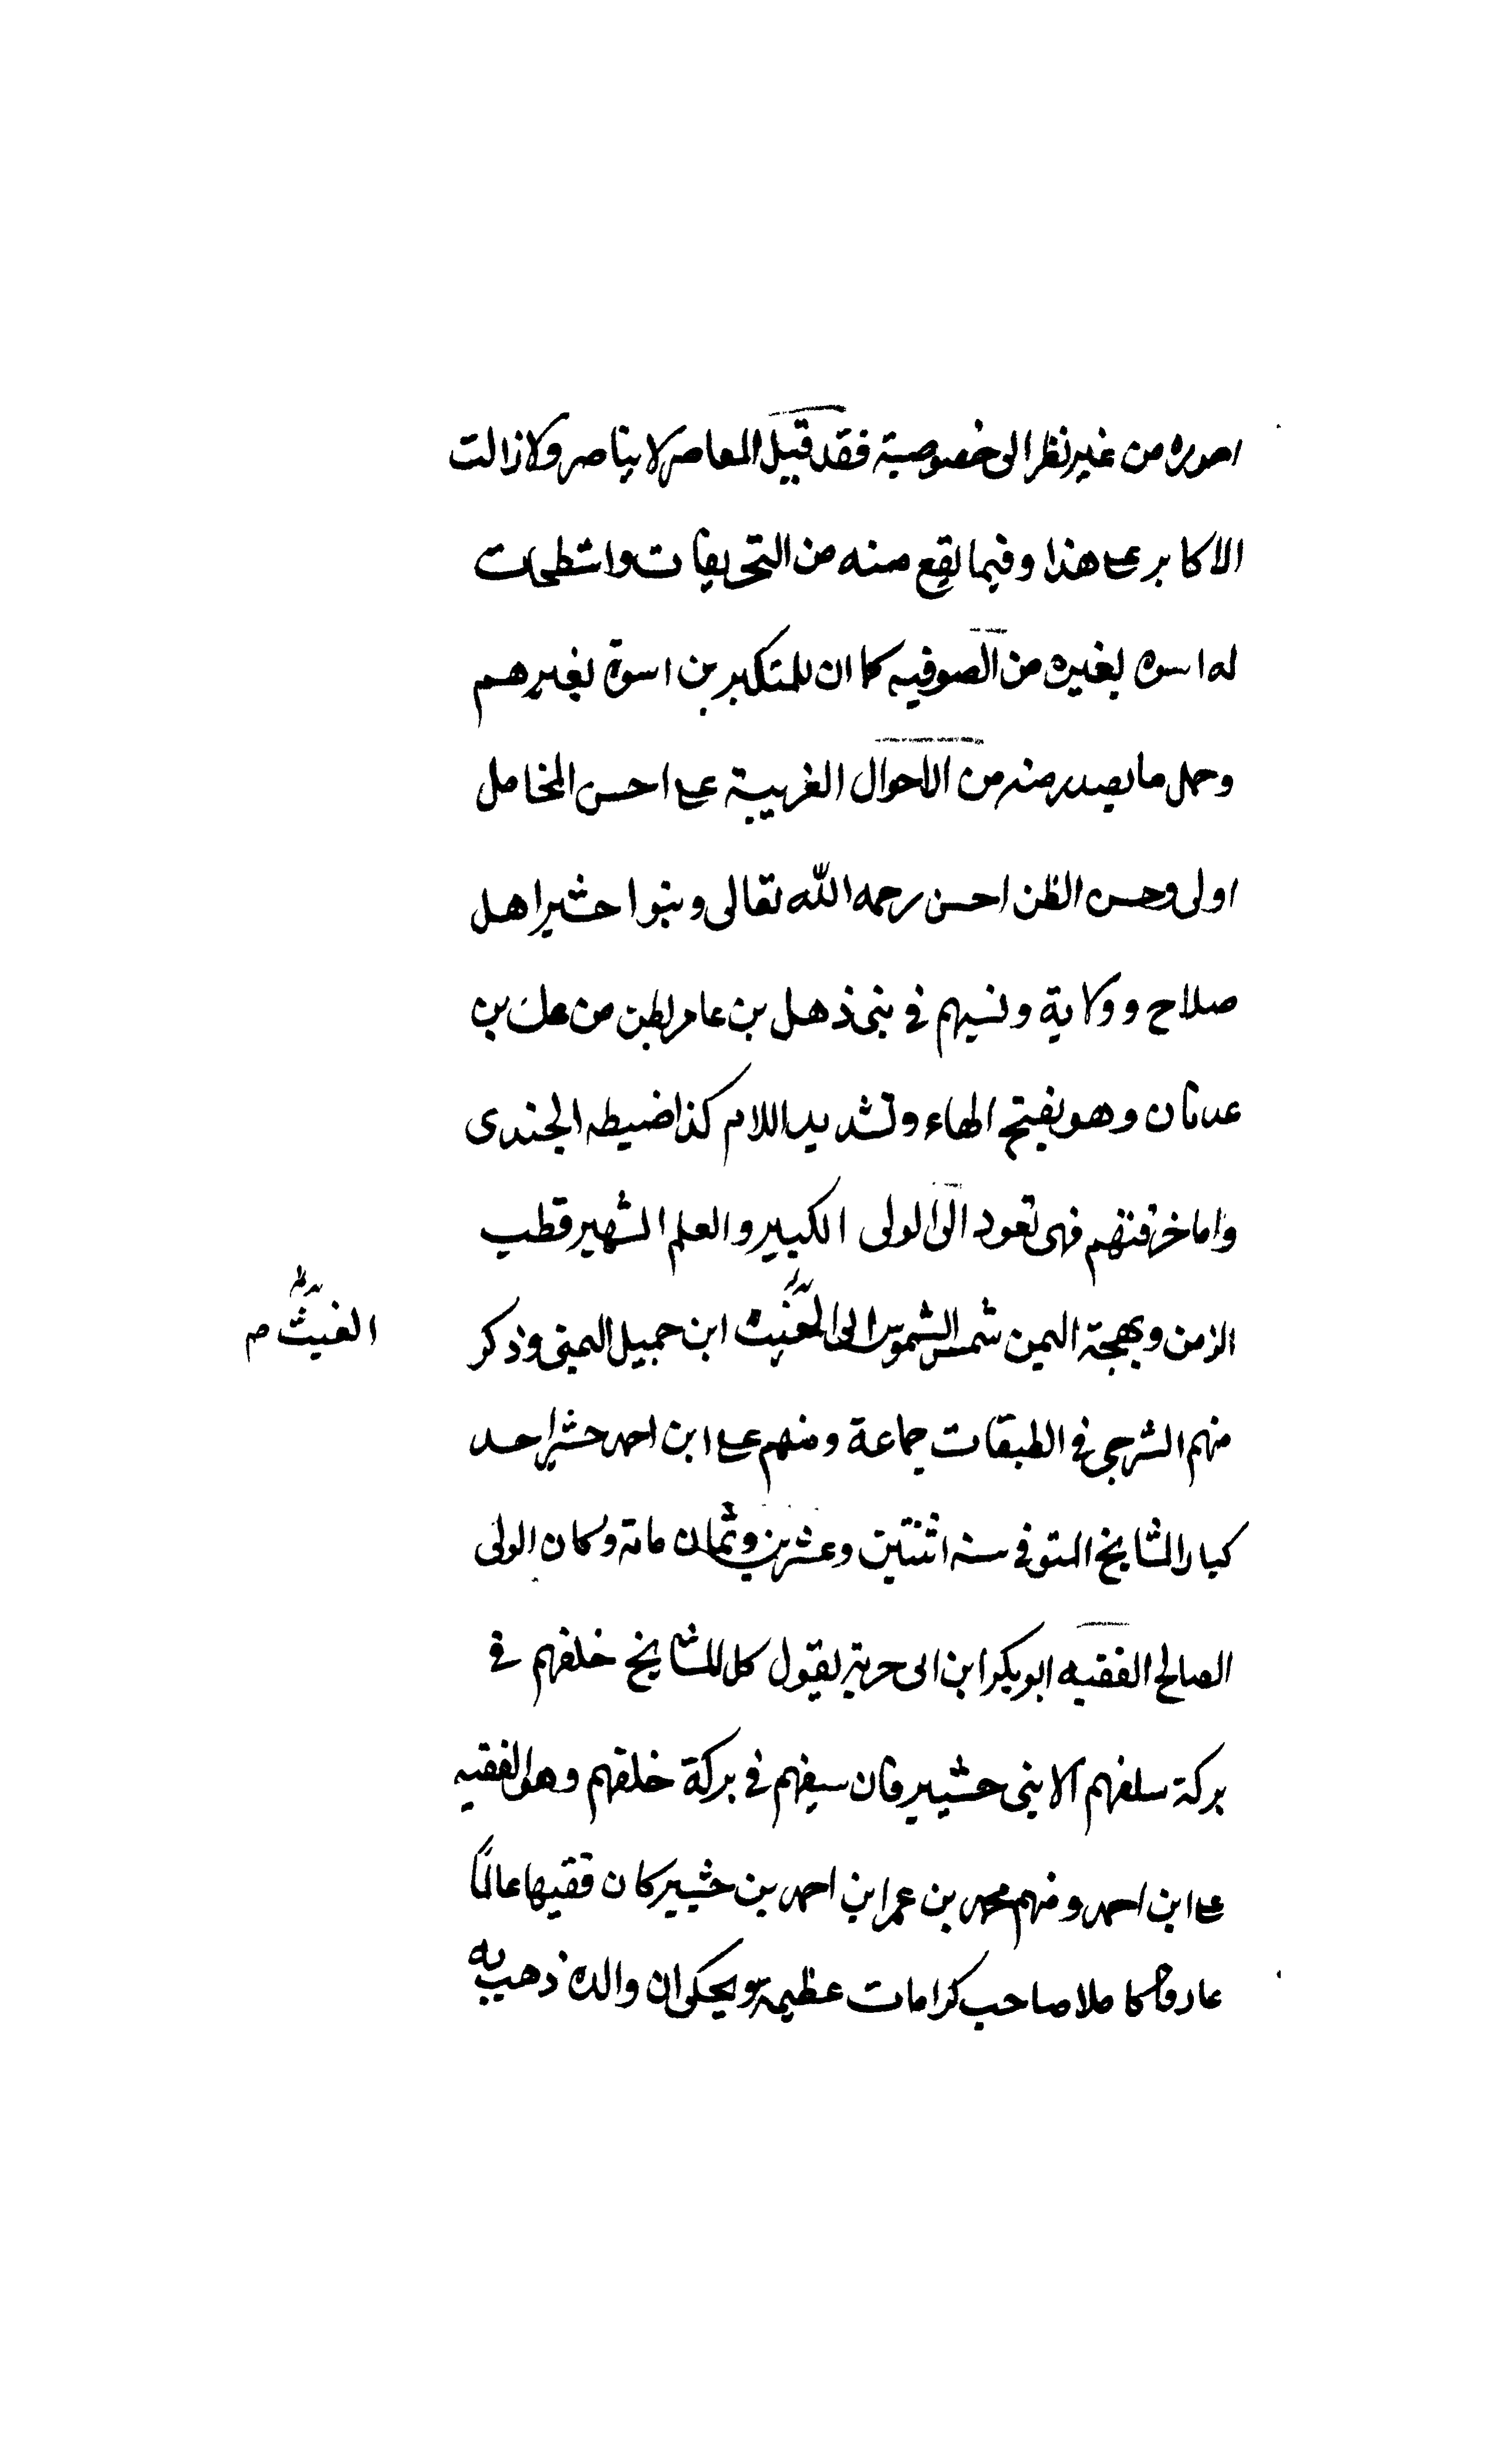 اموره من غير نظر الى خصوصية فقد قيل المعاصر لا يناصر ولا زالت
الاكابر على هذا وفيما يقع منه من التحريفات واشطحات
له اسوه بغيره من الصوفيه كما ان للمتكبرين اسوة بغيرهم
وحمل ما يصدر منه من الاحوال الغريبة على احسن المحامل
اولى وحسن الظن احسن رحمه الله تعالى وبنوا حشيبر اهل
صلاح وولاية ونسبهم في بنى ذهل بن عامر بطن من عك بن
عدنان وهو بفتح الهاء وتشديد اللام كذا ضبطه الجندى
واما خرقتهم فهى تعود الى الولى الكبير والعلم الشهير قطب
الزمن وبهجة اليمن شمس الشموس ابى الغيث ابن جميل اليمنى وذكر
الغيث م
منهم الشرجى في الطبقات جماعة ومنهم على ابن احمد حشيبر احد
كبار المشايخ المتوفي سنه اثنتين وعشرين وثمان مائة وكان الولى
الصالح الفقيه ابو بكر ابن ابى حربة يقول كل المشايخ خلفهم في
بركة سلفهم الا بنى حشيبر فان سلفهم في بركة خلفهم وهو الفقيه
على ابن احمد ومنهم محمد بن عمر ابن احمد بن حشيبر كان فقيها عالمًا
عارفا كاملا صاحب كرامات عظيمة ويحكى ان والده ذهب به